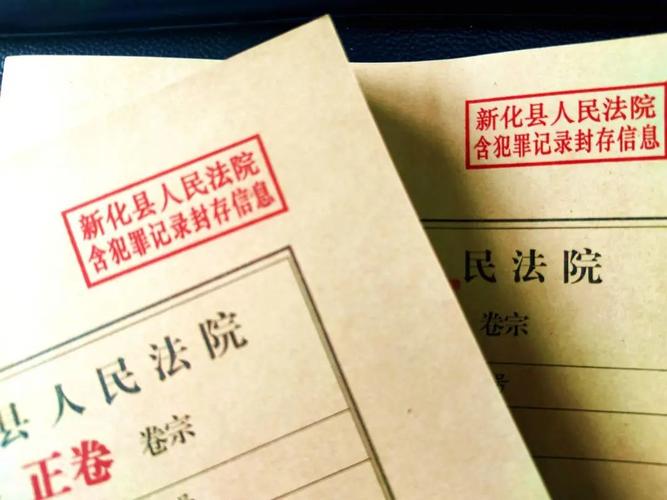 新化县人民法院
含犯罪记录封存信息
县人民法院
正卷 卷宗
号
新化县人民法院
含犯罪记录封存信息
民法院
卷宗
号